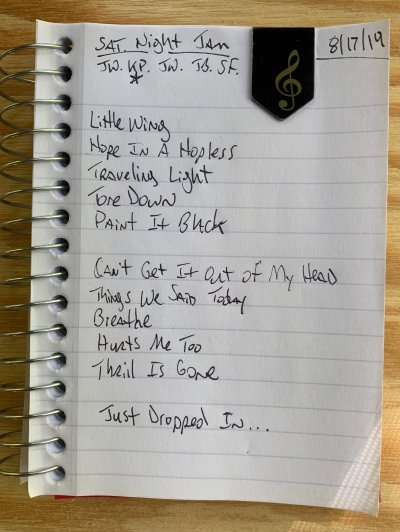 SAT. Night Jam
8/17/19
JW. KP. JW. JB. SF.
*
Little Wing
Hope In A Hopless
Traveling Light
Tore Down
Paint It Black
Can't Get It Out of My Head
Things We Said Today
Breathe
Hurts Me Too
Thrill Is Gone
Just Dropped In...